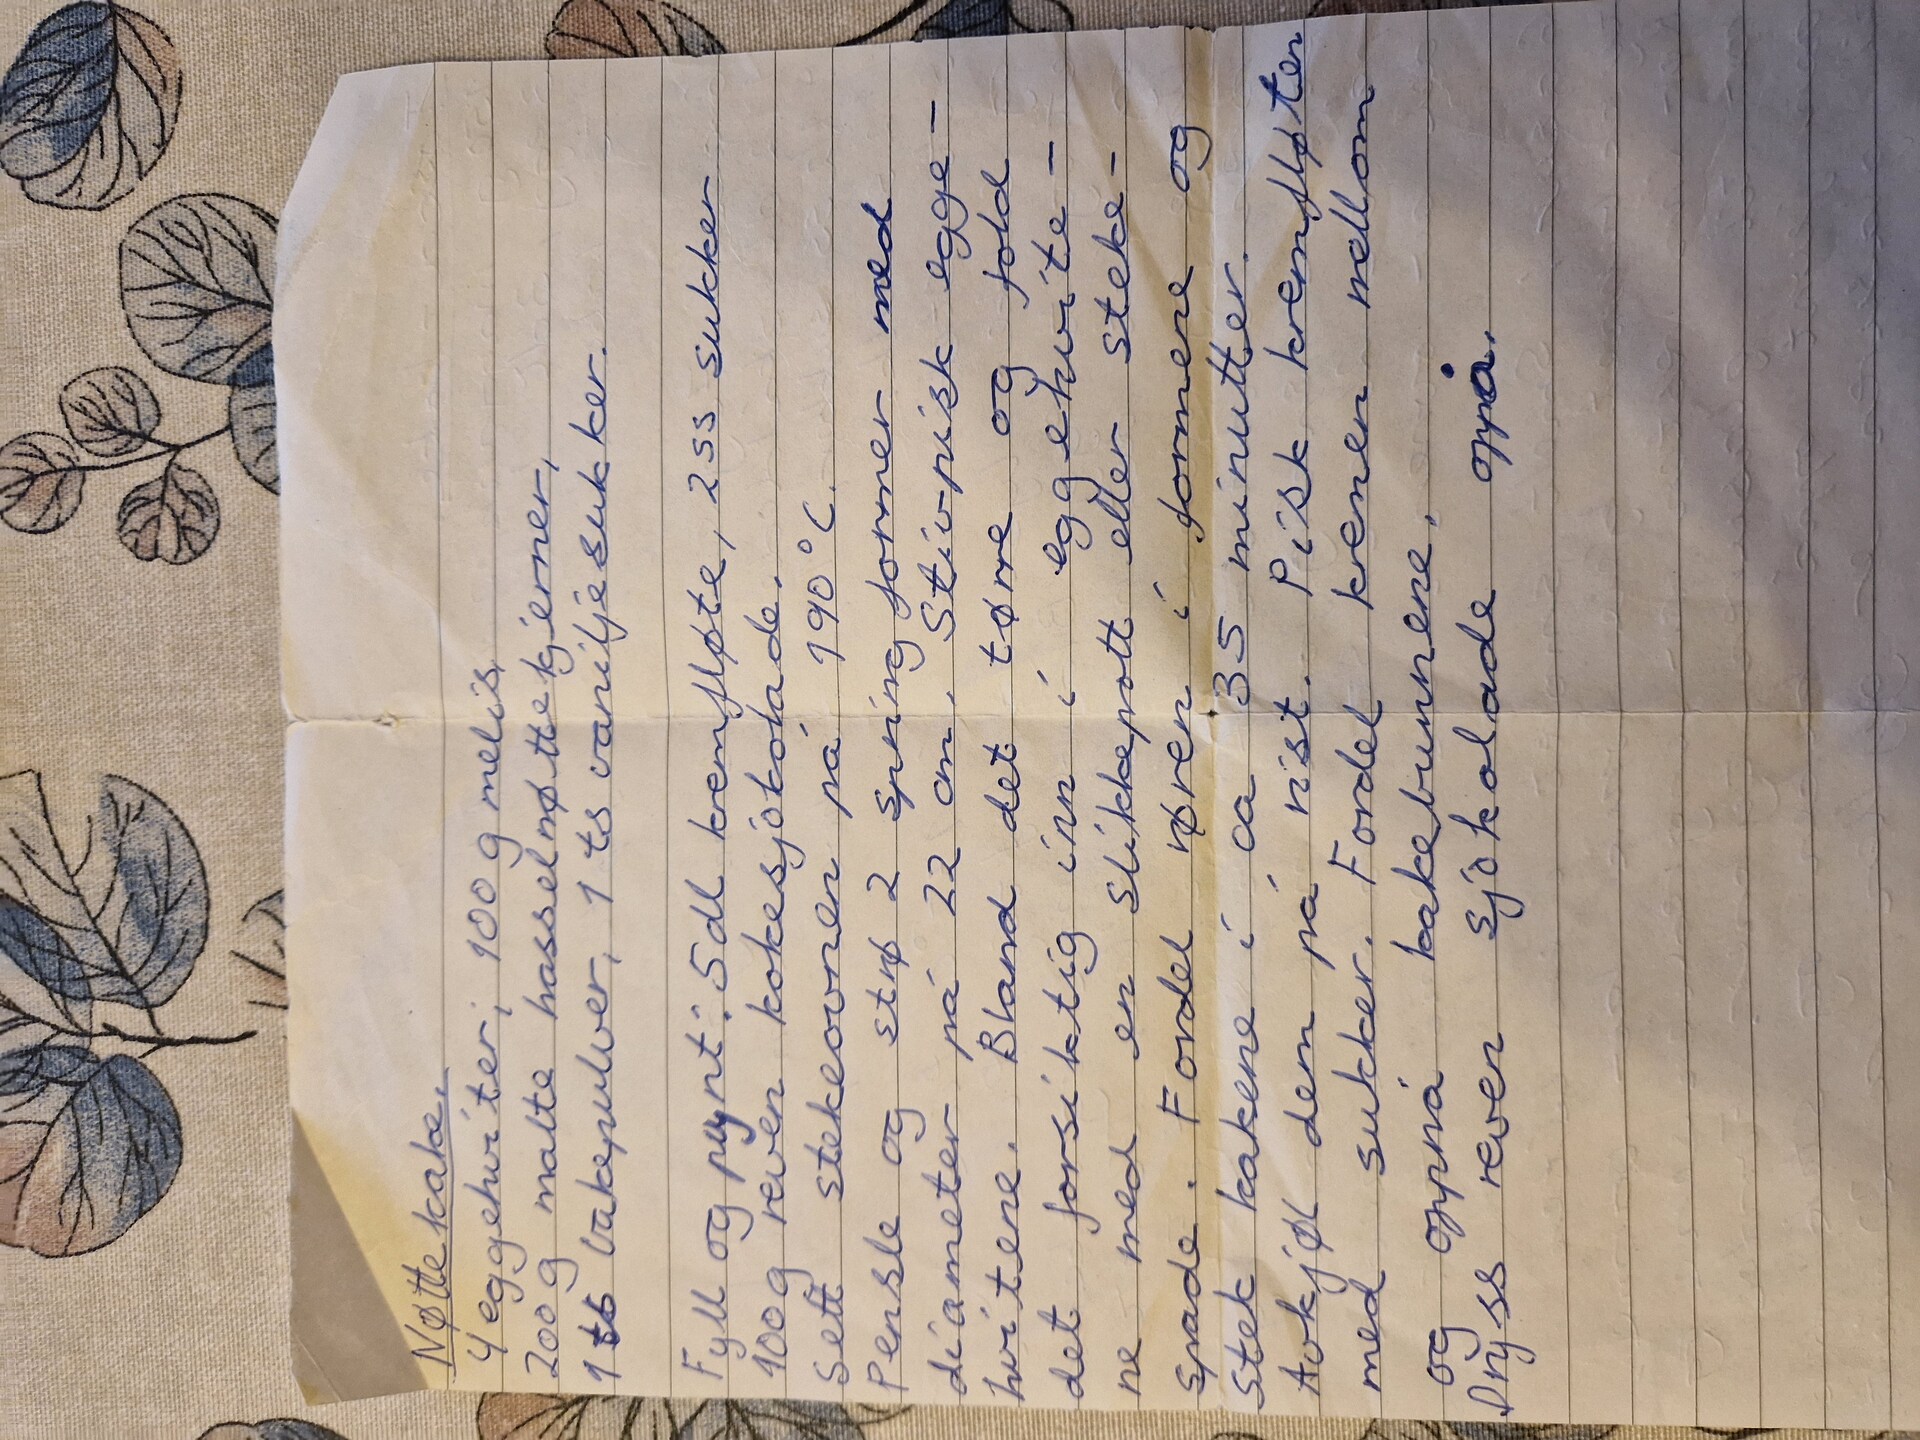 Nøttekake.
4 eggehviter; 100 g melis,
200 g malte hasselnøttekjerner,
1 ts bakepulver, 1 ts vaniljesukker.
Fyll og pynt: 5 dl kremfløte, 2 ss sukker
100 g reven kokesjokolade.
Sett stekeovnen på 190°C.
Pensle og strø 2 springformer med
diameter på 22 cm. Stivpisk egge-
hvitene. Bland det tørre og fold
det forsiktig inn i eggehvite-
ne med en slikkepott eller steke-
spade. Fordel røren i formene og
stek kakene i ca 35 minutter.
Avkjøl dem på rist. Pisk kremfløten
med sukker. Fordel kremen mellom
og oppnå kakebunnene.
Dryss reven sjokolade oppå.